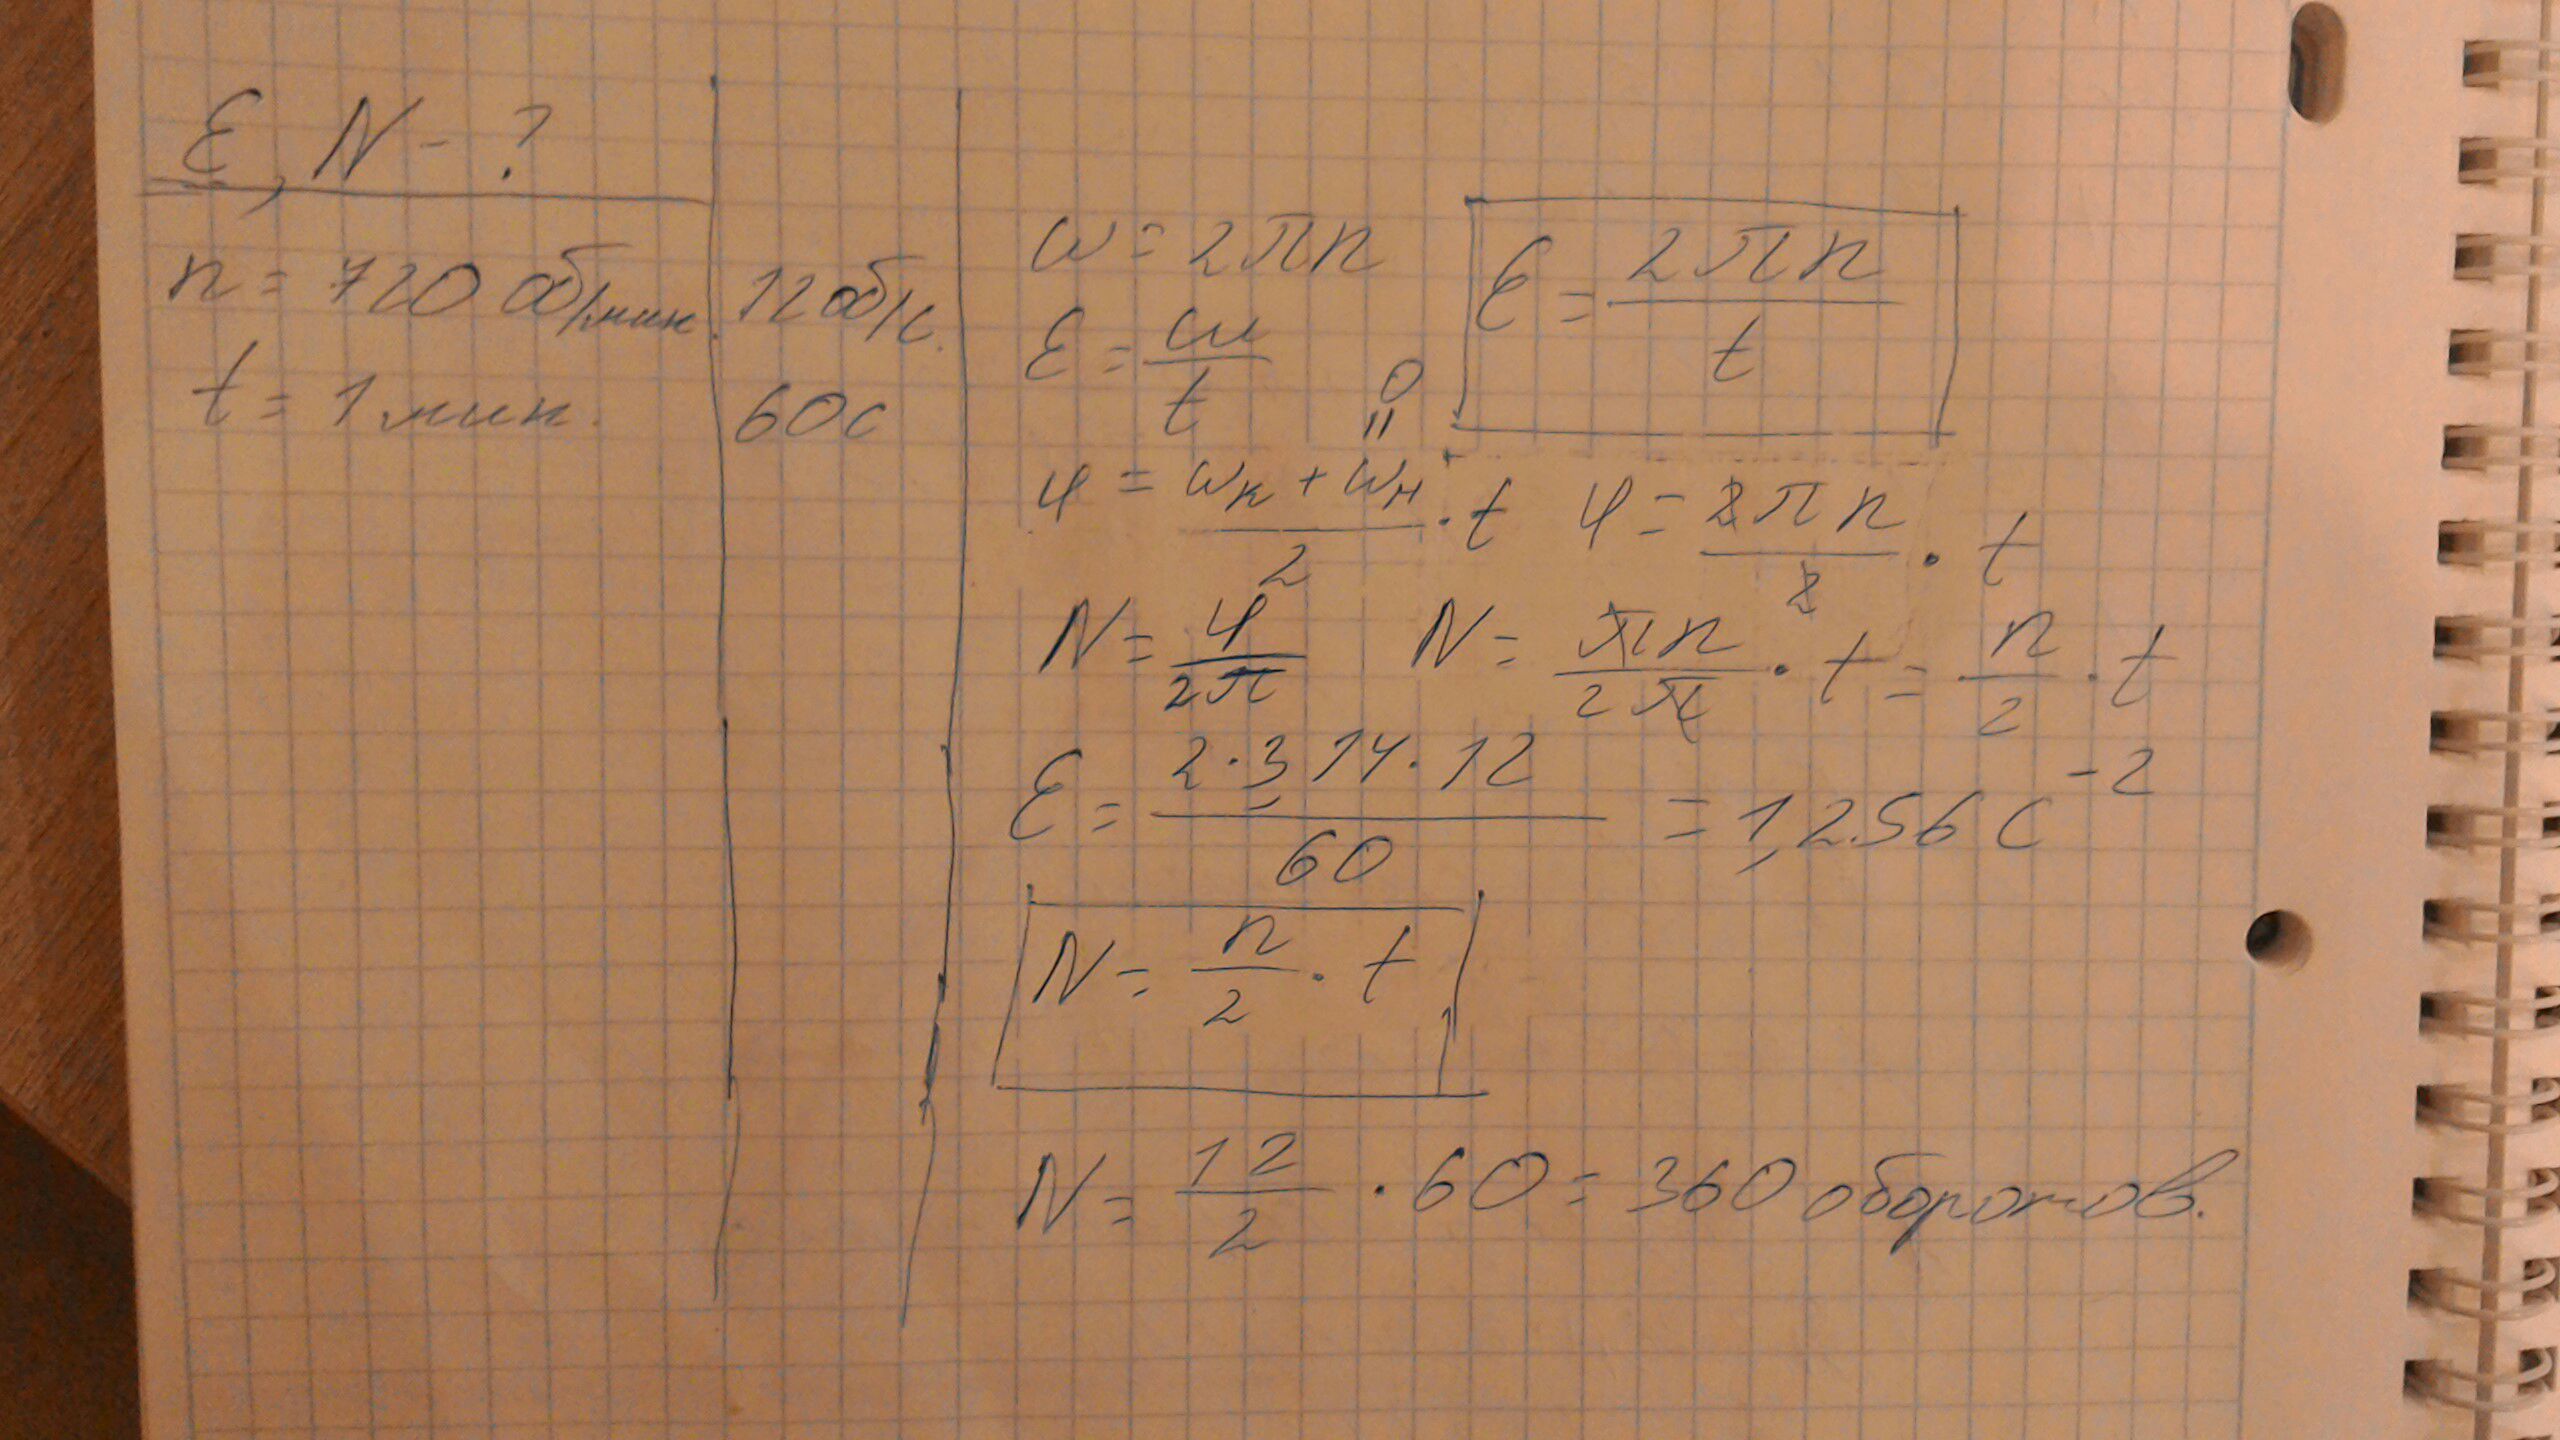 ε, N - ?
n = 720 об/мин. 12 об/с.
t = 1 мин. 60 с
ω = 2πn
ε = ω/t
ε = 2πn/t
0
"
φ = (ωк + ωн)/2 · t φ = 2πn/2 · t
N = φ/2π N = πn/2π · t = n/2 · t
ε = 2·3,14·12/60 = 1,256 с⁻²
N = n/2 · t
N = 12/2 · 60 = 360 оборотов.